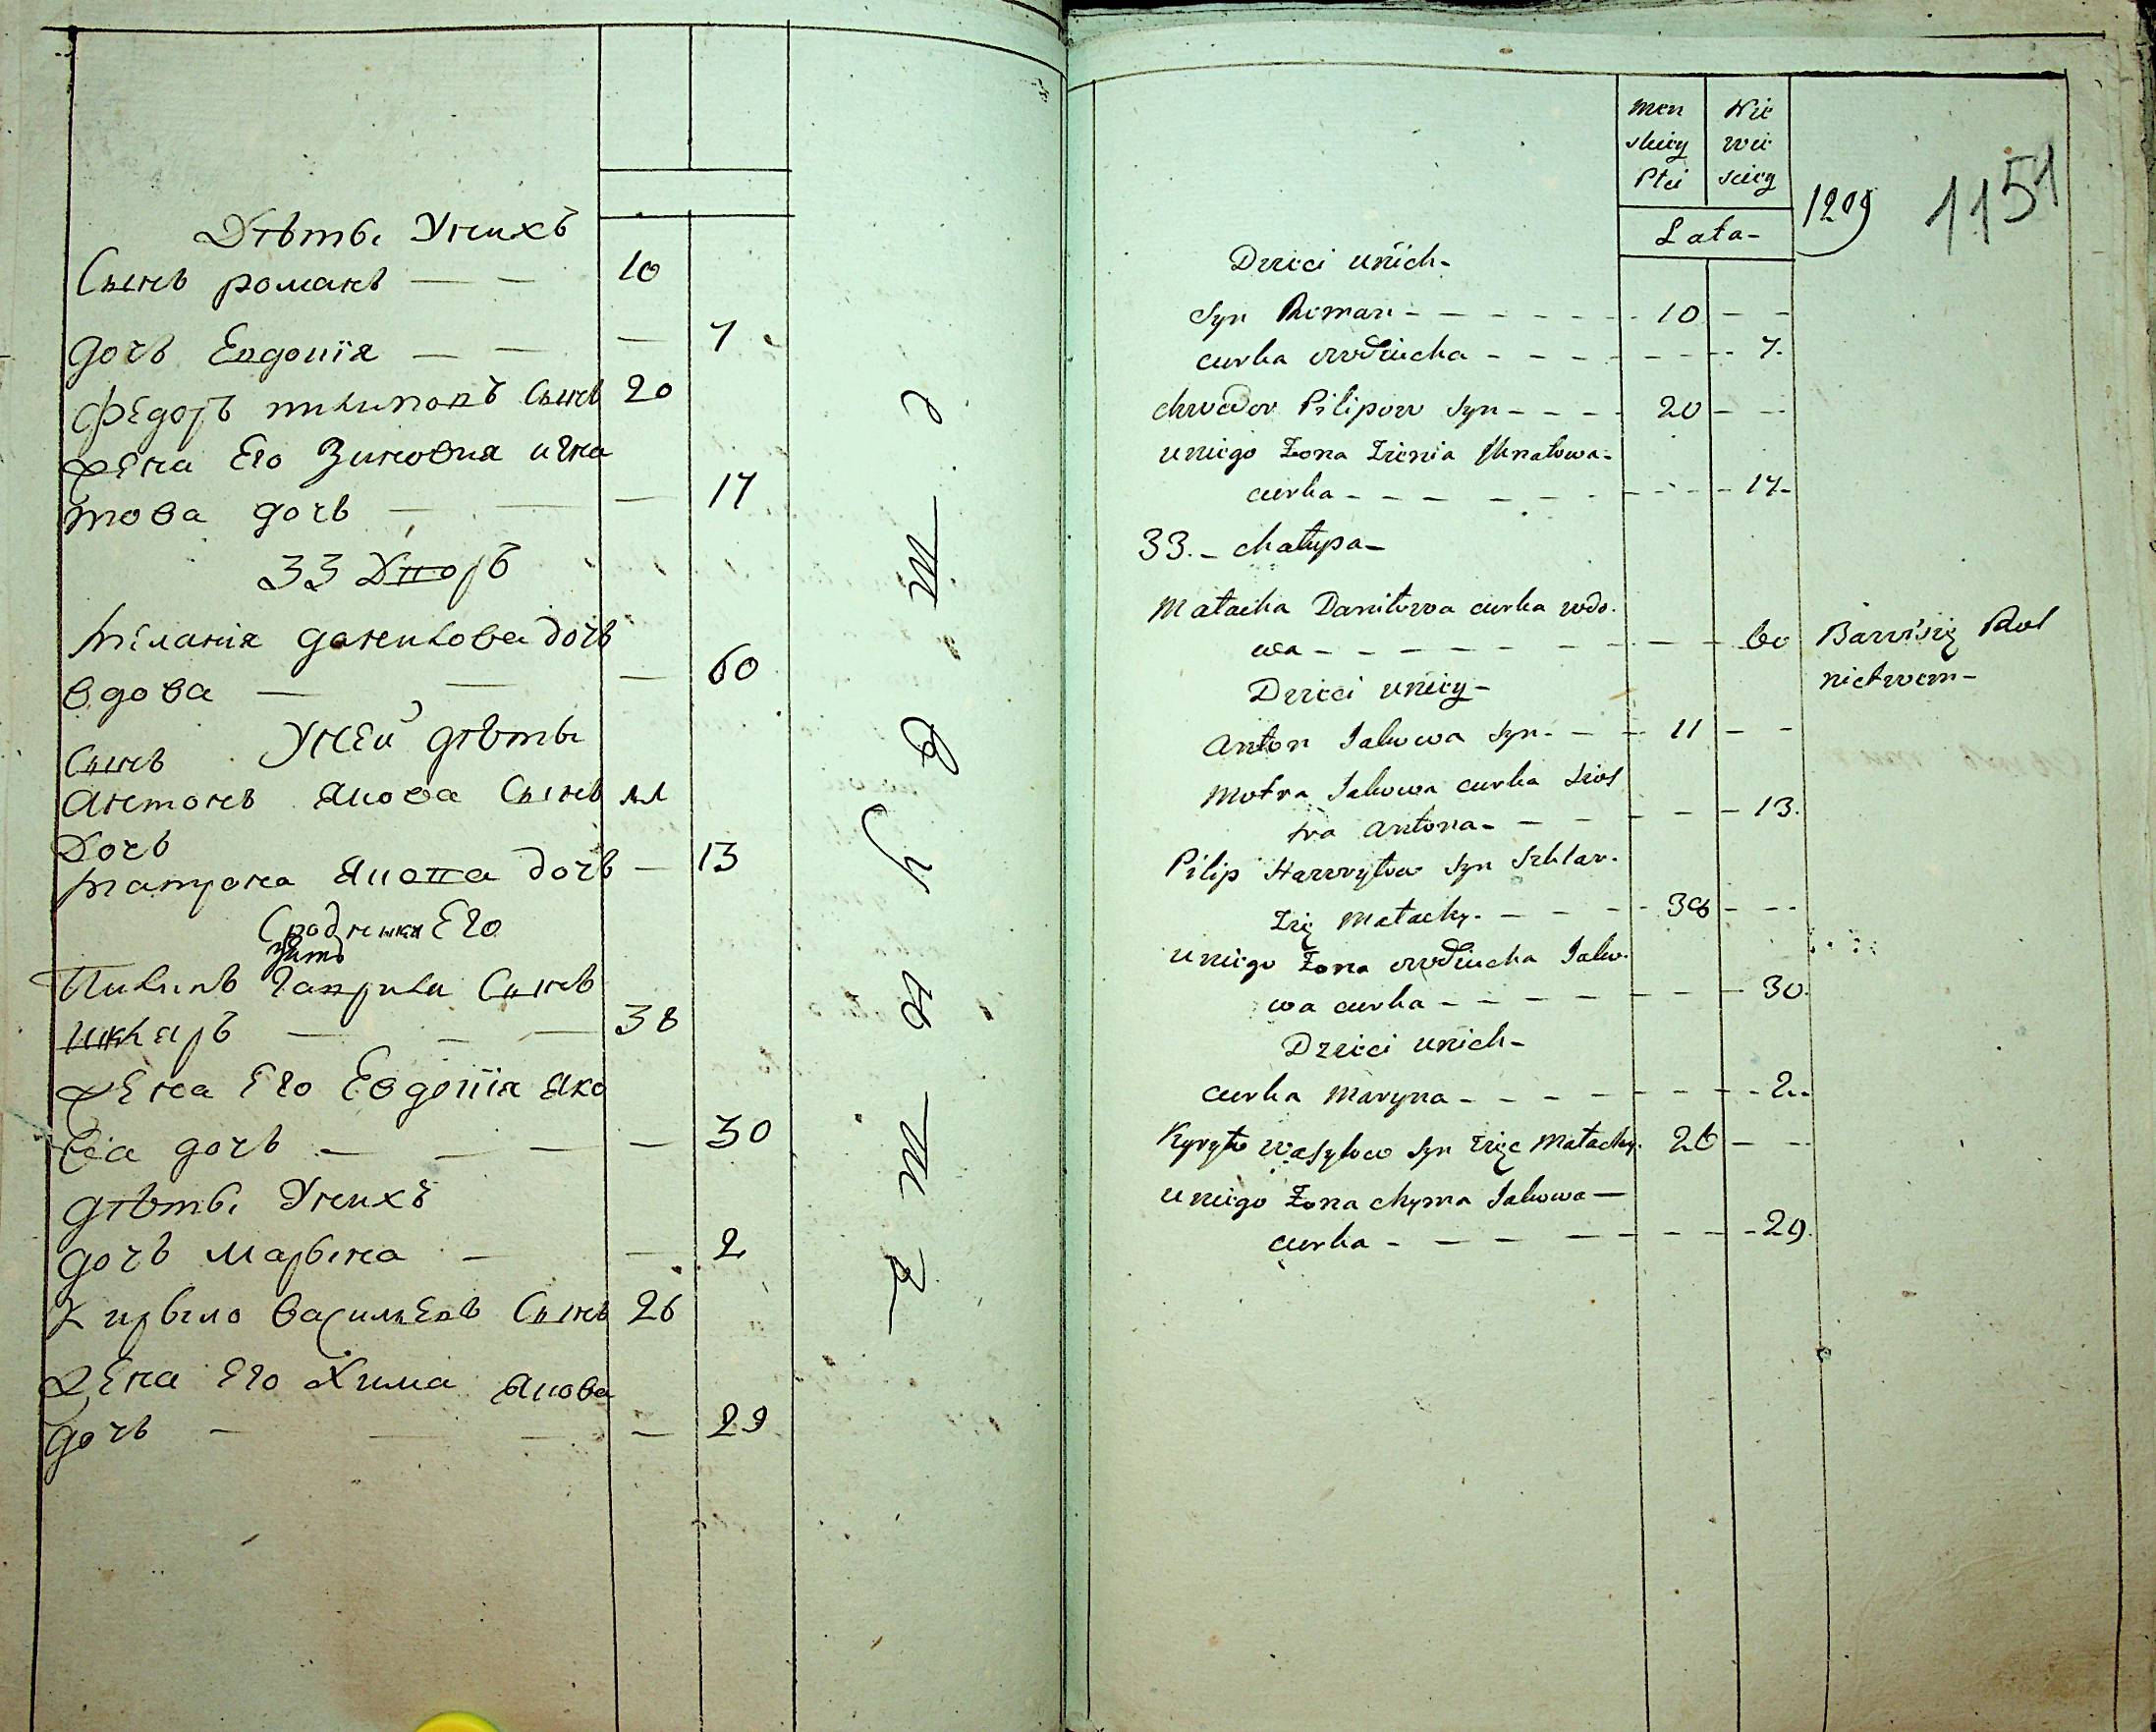 Дѣтьі Унихъ
Сынъ романъ — — 10
дочь Евдокія — — — 7
Федоръ пилиповъ Сынъ 20
жена Его Зиновия игна
това дочь — — — 17
33 Дворъ
Меланія данилова дочь
вдова — — — 60
Сынъ Уней дѣтьі
Антонъ Якова Сынъ 11
Дочь
Матрона Якова дочь — 13
Сродники Его
зять
Пилипъ Гаврили Сынъ
шкляръ — — — 38
жена Его Евдокія Яко
ва дочь — — — — 30
дѣтьі Унихъ
дочь Марьіна — — 2
Кирьіло Васильевъ Сынъ 26
жена Его Хима Якова
дочь — — — — 29
men
skiey
Płci
Nie
wie
sciey
Lata-
1209
1151
Dzieci unich-
Syn Roman - - - - - - - 10 - -
curka owdiucha - - - - - - - 7.
chwedor Pilipow Syn - - - - 20 - -
uniego Żona Zienia Ihnatowa-
curka - - - - - - - - - 17-
33.- chałupa-
Małacha Daniłowa curka wdo.
wa - - - - - - - - - 60 Bawisię Rol
nictwem-
Dzieci uniey-
Anton Jakowa Syn - - - 11 - -
Motra Jakowa curka Sios
tra Antona - - - - - 13.
Pilip Hawryłow Syn Szklar.
Zię Małachy. - - - - 38 - --
uniego Żona owdiucha Jako.
wa curka - - - - - - - 30.
Dzieci unich-
curka Maryna - - - - - - - 2..
Kyryło wasylow Syn Zięc Małachy. 26 - --
uniego Żona chyma Jakowa —
curka - - - - - - - - -29.